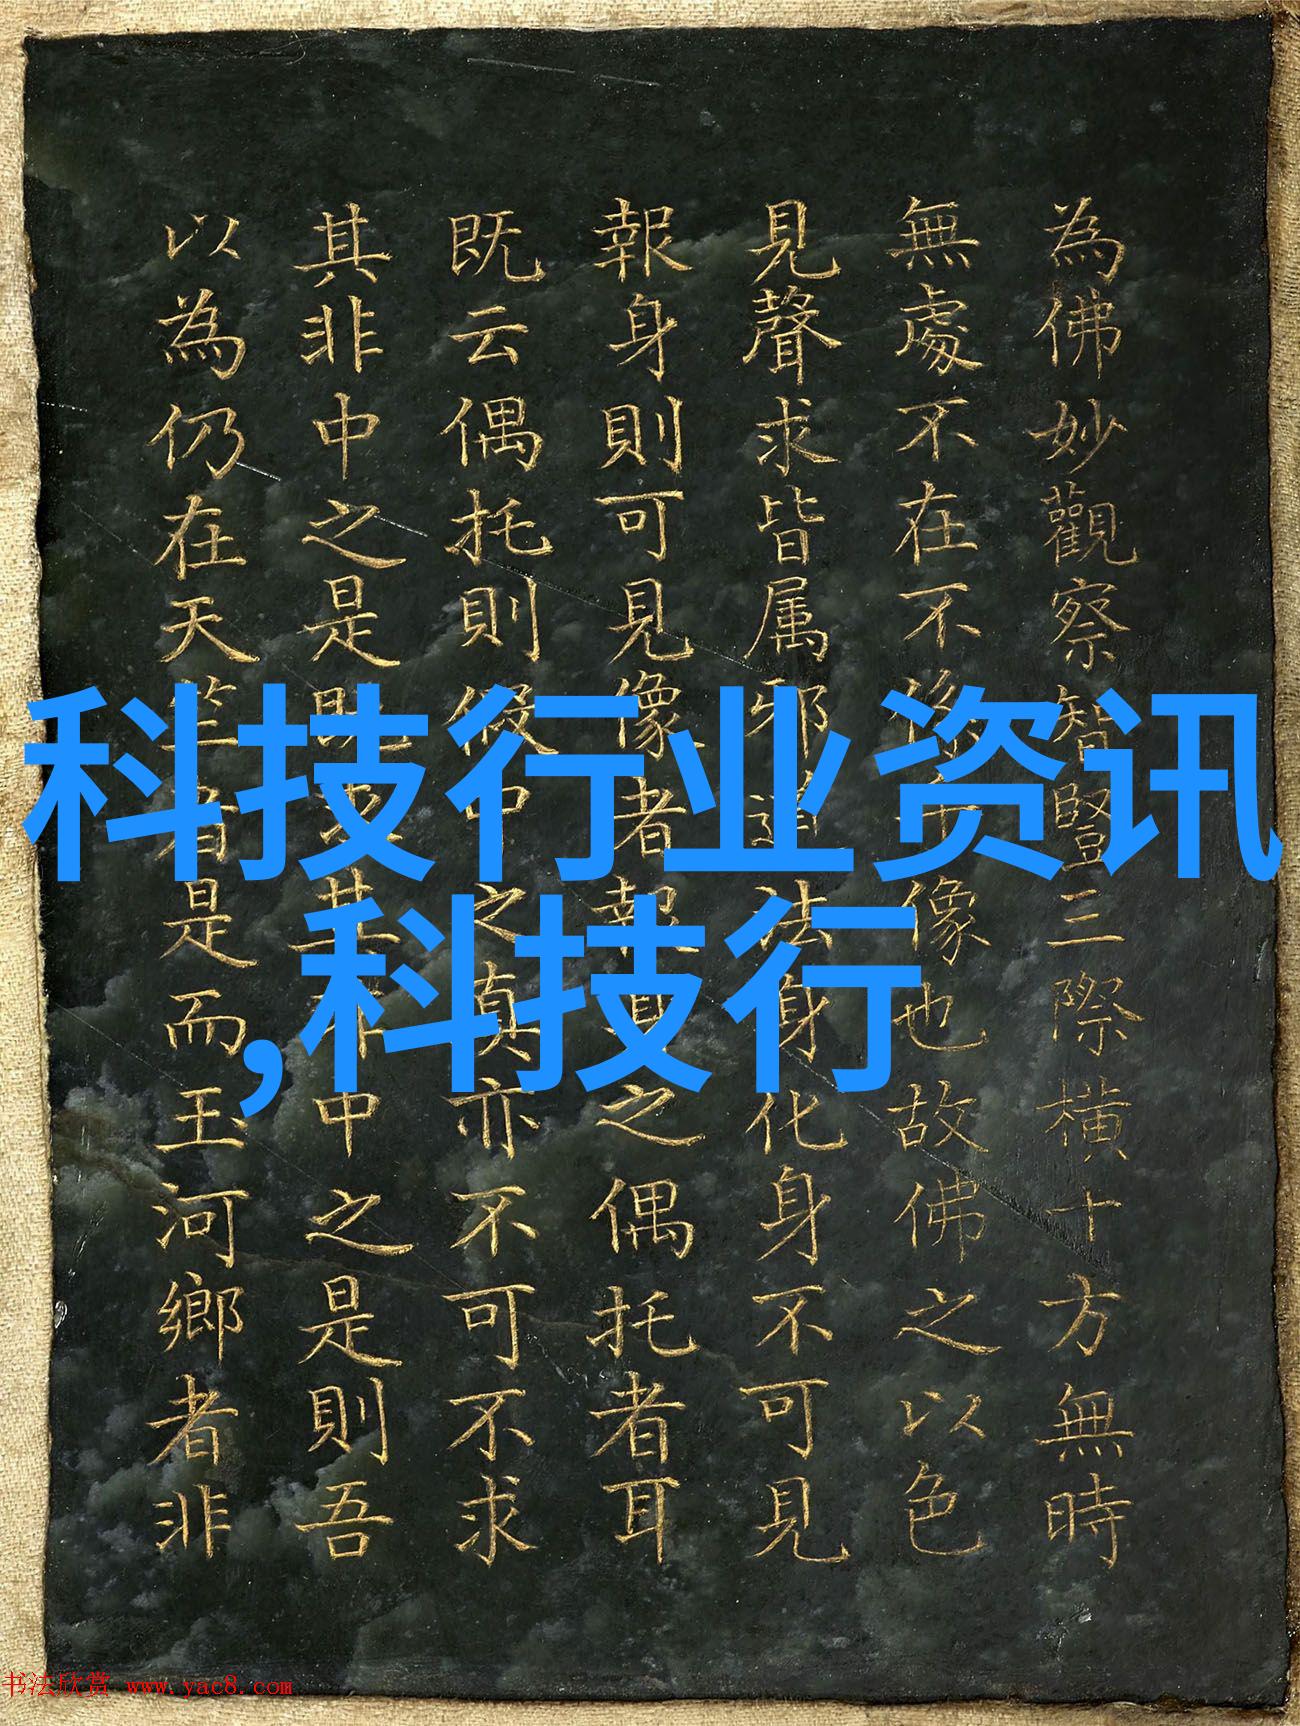 為佛妙觀察智豎三際橫十方無時
無處不在不像也故佛之以色
見聲求皆属邪道法身化身不可見
報身則可見像者報身之偶托者耳
既云偶托則假中之真亦不可不求
其非中之是既求其非中之是則吾
以為仍在天竺者是而玉河鄉者非
科技行业资讯
,科技行
书法欣赏 www.yac8.com